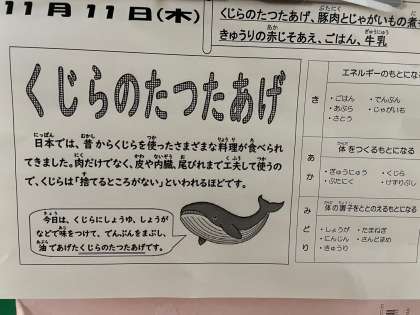 11月11日(木)
くじらのたつたあげ、豚肉とじゃがいもの煮
きゅうりの赤じそあえ、ごはん、牛乳
くじらのたつたあげ
日本では、昔からくじらを使ったさまざまな料理が食べられ
てきました。肉だけでなく、皮や内臓、尾びれまで工夫して使うの
で、くじらは「捨てるところがない」といわれるほどです。
今日は、くじらにしょうゆ、しょうが
などで味をつけて、でんぷんをまぶし、
油であげたくじらのたつたあげです。
エネルギーのもとにな
き
・ごはん ・でんぷん
・あぶら ・じゃがいも
・さとう
体をつくるもとになる
あか
・ぎゅうにゅう ・くじら
・ぶたにく ・けずりぶし
体の調子をととのえるもとになる
みどり
・しょうが ・たまねぎ
・にんじん ・さんどまめ
・きゅうり